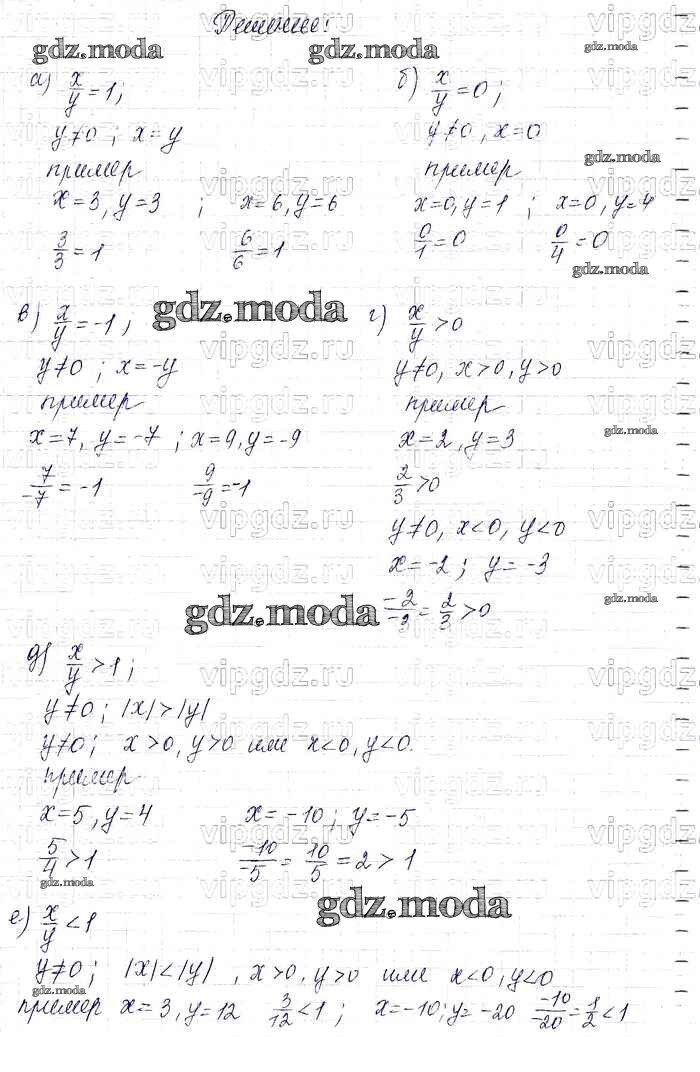 Решение!
gdz.moda gdz.moda
а) x/y = 1; б) x/y = 0;
y≠0 ; x = y y≠0, x=0
gdz.moda
пример пример
x=3, y=3 ; x=6, y=6 x=0, y=1 ; x=0, y=4
3/3 = 1 6/6 = 1 0/1 = 0 0/4 = 0
gdz.moda
в) x/y = -1, gdz.moda г) x/y > 0
y≠0 ; x=-y y≠0, x>0, y>0
пример пример
x=7, y=-7 ; x=9, y=-9 x=2, y=3
gdz.moda
7/-7 = -1 9/-9 = -1 2/3 > 0
y≠0, x<0, y<0
x=-2 ; y=-3
gdz.moda gdz.moda
-2/-3 = 2/3 > 0
д) x/y > 1;
y≠0; |x|>|y|
y≠0; x>0, y>0 или x<0, y<0.
пример
x=5, y=4 x=-10; y=-5
5/4 > 1 -10/-5 = 10/5 = 2 > 1
gdz.moda
gdz.moda
е) x/y < 1
y≠0; |x|<|y| , x>0, y>0 или x<0, y<0
gdz.moda
пример x=3, y=12 3/12 < 1 ; x=-10; y=-20 -10/-20 = 1/2 < 1
vipgdz.ru